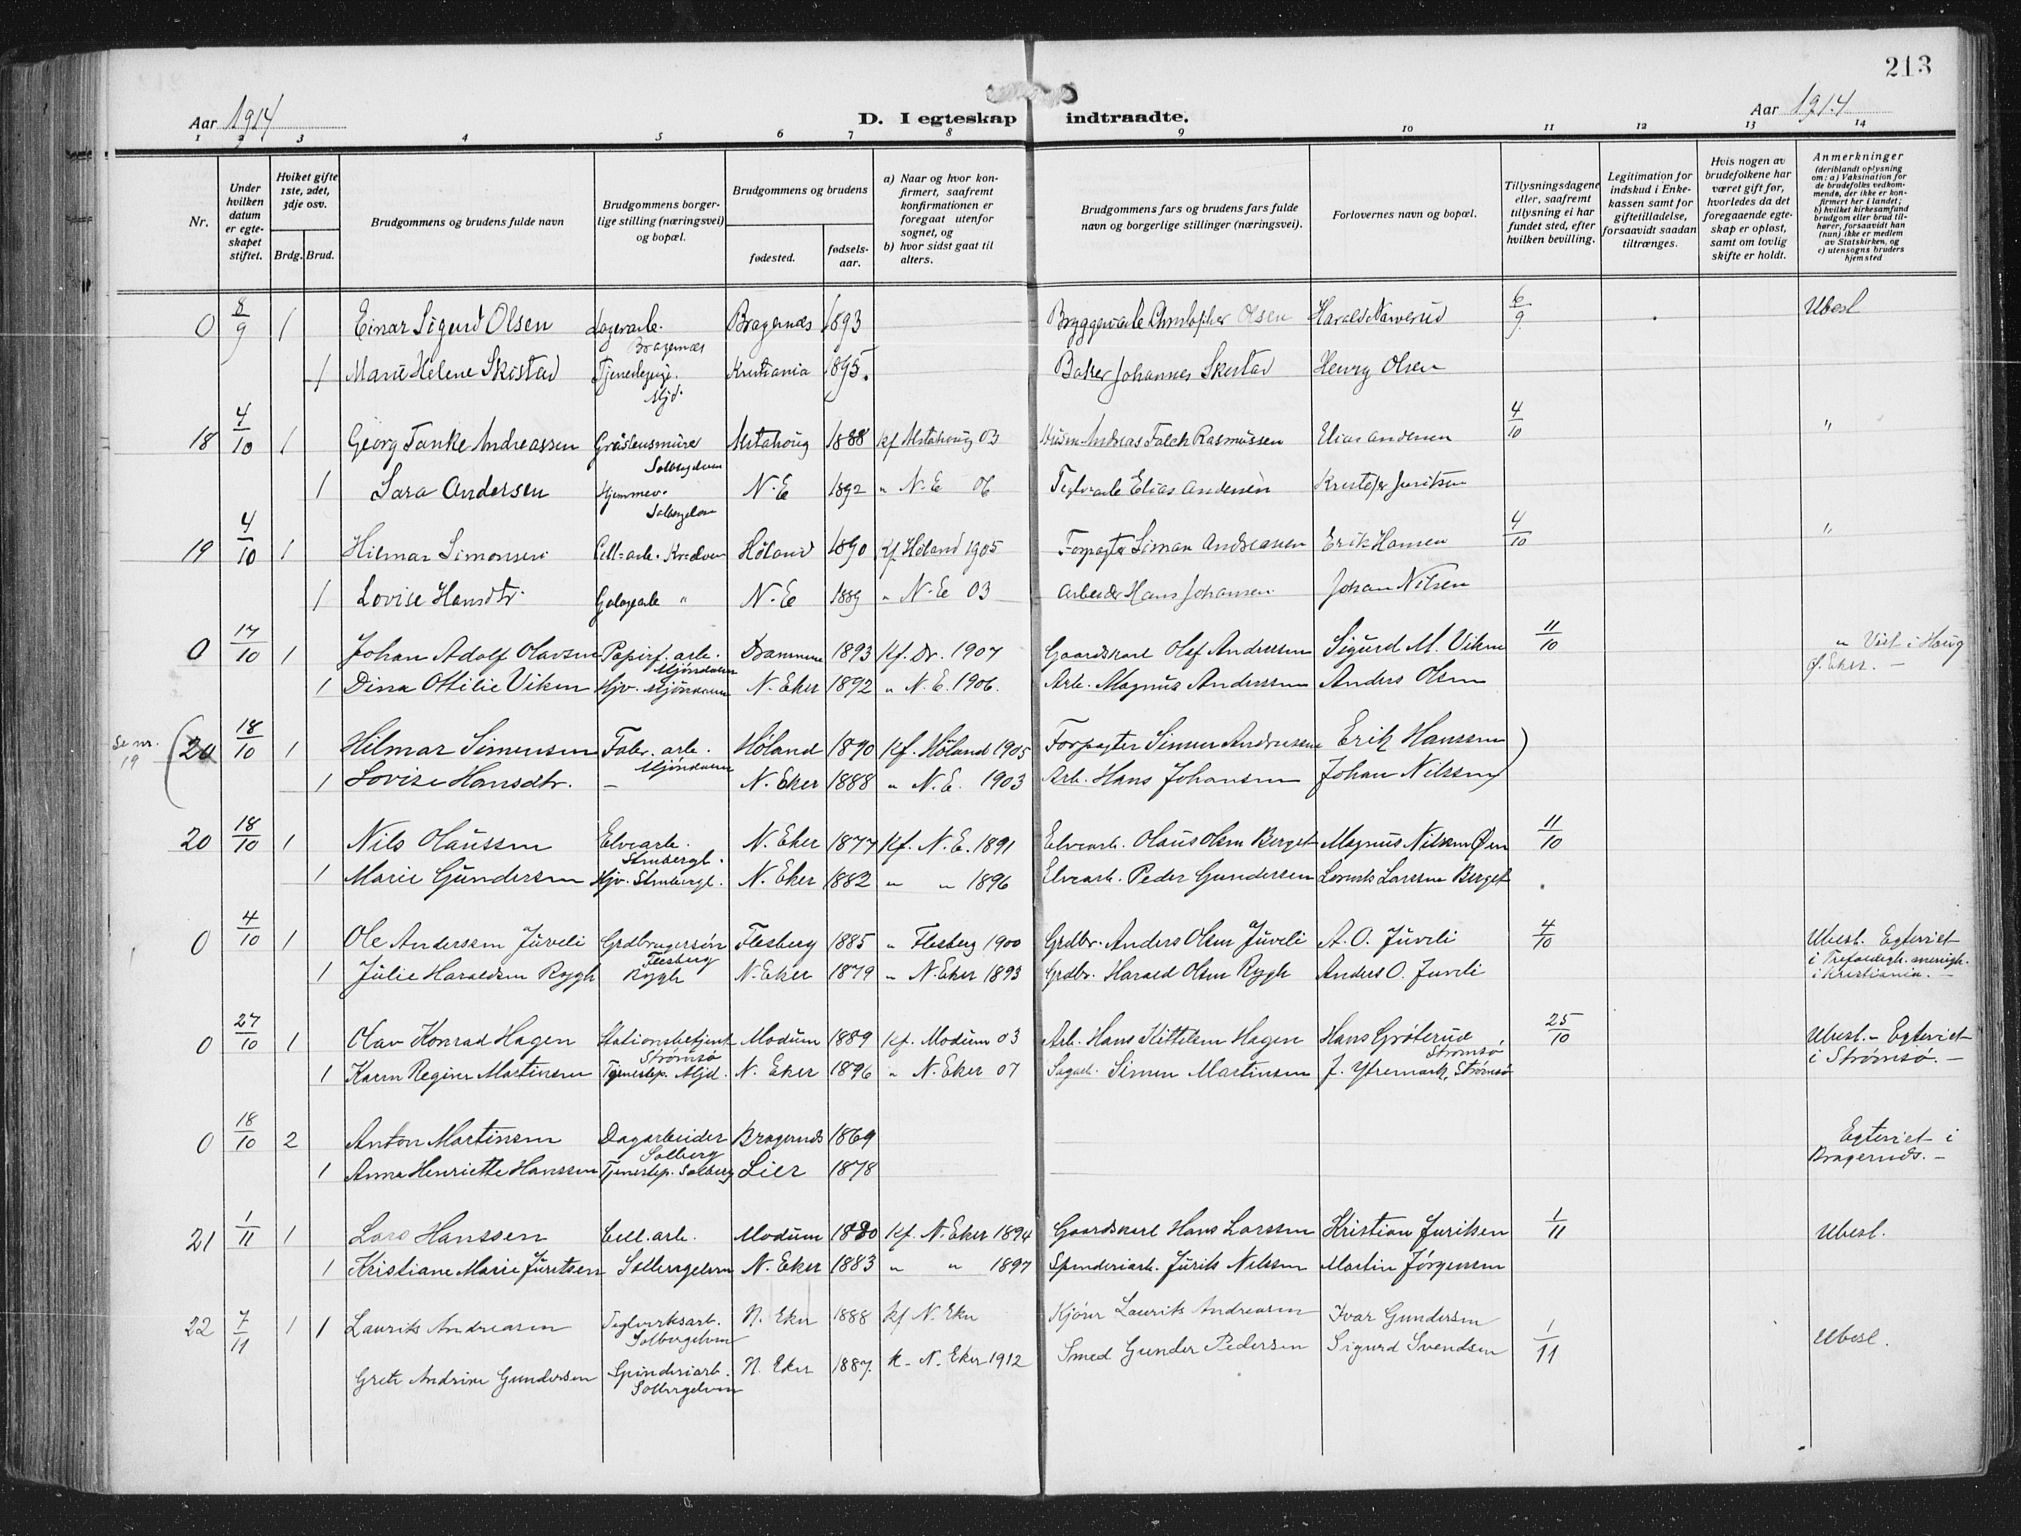 213
Aar 1914
D. I egteskap indtraadte.
Aar 1914
1 2 3 4 5 6 7 8 9 10 11 12 13 14
Nr.
Under hvilken datum er egteskapet stiftet.
Hviket gifte 1ste, 2det, 3dje osv.
Brdg. Brud.
Brudgommens og brudens fulde navn
Brudgommens borgerlige stilling (næringsvei) og bopæl.
Brudgommens og brudens
fødested.
fødselsaar.
a) Naar og hvor konfirmert, saafremt konfirmationen er foregaat utenfor sognet, og
b) hvor sidst gaat til alters.
Brudgommens fars og brudens fars fulde navn og borgerlige stillinger (næringsvei).
Forlovernes navn og bopæl.
Tillysningsdagene eller, saafremt tillysning ei har fundet sted, efter hvilken bevilling.
Legitimation for indskud i Enkekassen samt for giftetilladelse, forsaavidt saadan tiltrænges.
Hvis nogen av brudefolkene har været gift før, hvorledes da det foregaaende egteskap er opløst, samt om lovlig skifte er holdt.
Anmerkninger (deriblandt oplysning om: a) Vaksination for de brudefolks vedkommende, der ikke er konfirmert her i landet; b) hvilket kirkesamfund brudgom eller brud tilhører, forsaavidt han (hun) ikke er medlem av Statskirken, og c) utensogns bruders hjemsted
0 8/9 1 Einar Sigurd Olsen Lagerarb. Bragernæs Bragernæs 1893 Bryggeriarb Christopher Olsen Harald Narverud 6/9 Ubesl
1 Marie Helene Skistad Tjenestepige. Mjd. Kristiania 1895. Baker Johannes Skistad Henry Olsen
18 4/10 1 Georg Tanke Andreassen Alstahoug 1888 kf Alstahoug 03 Andreas Falck Rasmussen Elias Andersen 4/10 "
1 Sara Andersen Hjemmev. Solbergelven N. E 1892 " N. E 06 Teglv arb Elias Andersen Kristofer Juritsen
19 4/10 1 Hilmar Simonsen Cell-arb. Høland 1890 Kf Høland 1905 Forpagter Simon Andreassen Erik Hansen 4/10 "
1 Lovise Hansdtr. " N. E 1889 " N. E 03 Arbeider Hans Johansen Johan Nilsen
0 17/10 1 Johan Adolf Olavsen Papirf. arb. Mjøndalen Drammen 1893 Kf. Dr. 1907 Gaardskarl Olef Andersen Sigurd M. Viken 11/10 " Viet i Haug Ø. Eker. –
1 Dina Ottilie Viken Hjv. Mjøndalen N. Eker 1892 " N. E. 1906. Arb. Magnus Anderssen Anders Olsen
Se nr. 19 (20 18/10 1 Hilmar Simensen Fabr. arb. Mjøndalen Høland 1890 Kf. Høland 1905 Forpagter Simen Andreassen Erik Hanssen )
1 Lovise Hansdtr. – N. Eker 1888 " N. E. 1903 Arb. Hans Johansen Johan Nilssen
20 18/10 1 Nils Olaussen Elvearb. Stenbergl. N. Eker 1877 Kf. N. E. 1891 Elvearb. Olaus Olsen Berget Magnus Nilssen Øen 11/10
1 Marie Gundersen Hjv. Stenbergl. N. Eker 1882 " " 1896 Elvearb. Peder Gundersen Lorents Larssen Berget
0 4/10 1 Ole Anderssen Juveli Grdbrugersøn Flesberg Flesberg 1885 " Flesberg 1900 Grdbr. Anders Olsen Juveli A. O. Juveli 4/10 Ubesl. Egteviet i Trefoldigh. menigh. i Kristiania. –
1 Julie Haraldsen Rygh Rygh N. Eker 1879 " N. Eker 1893 Grdbr. Harald Olsen Rygh Anders O. Juveli
0 27/10 1 Olav Konrad Hagen Stationsbetjent Strømsø Modum 1889 Kf. Modum 03 Arb. Hans Kittelsen Hagen Hans Grøterud Strømsø 25/10 Ubesl. – Egteviet i Strømsø. –
1 Karen Regine Martinsen Tjenestep. Mjd. N. Eker 1896 " N. Eker 07 Sagarb. Simen Martinsen J. Ytremark, Strømsø
0 18/10 2 Anton Martinsen Dagarbeider Solberg Bragernæs 1869 Egteviet i Bragernæs. –
1 Anna Henriette Hanssen Tjenestep. Solberg Lier 1878
21 1/11 1 Lars Hanssen Cell. arb. Modum 1880 Kf. N. Eker 1894 Gaardskarl Hans Larssen Kristian Juritsen 1/11 Ubesl.
1 Kristiane Marie Juritsen Solbergelven N. Eker 1883 " " 1897 Spinderiarb. Jurits Nilssen Martin Jørgensen
22 7/11 1 1 Laurits Andreasen Teglverksarb. Solbergelven N. Eker 1888 kf N. Eker Kjører Laurits Andreasen Ivar Gundersen 1/11 Ubesl.
Grete Andrine Gundersen Spinderiarb. Solbergelven N. Eker 1887. k – N. Eker 1912 Smed Gunder Pedersen Sigurd Svendsen